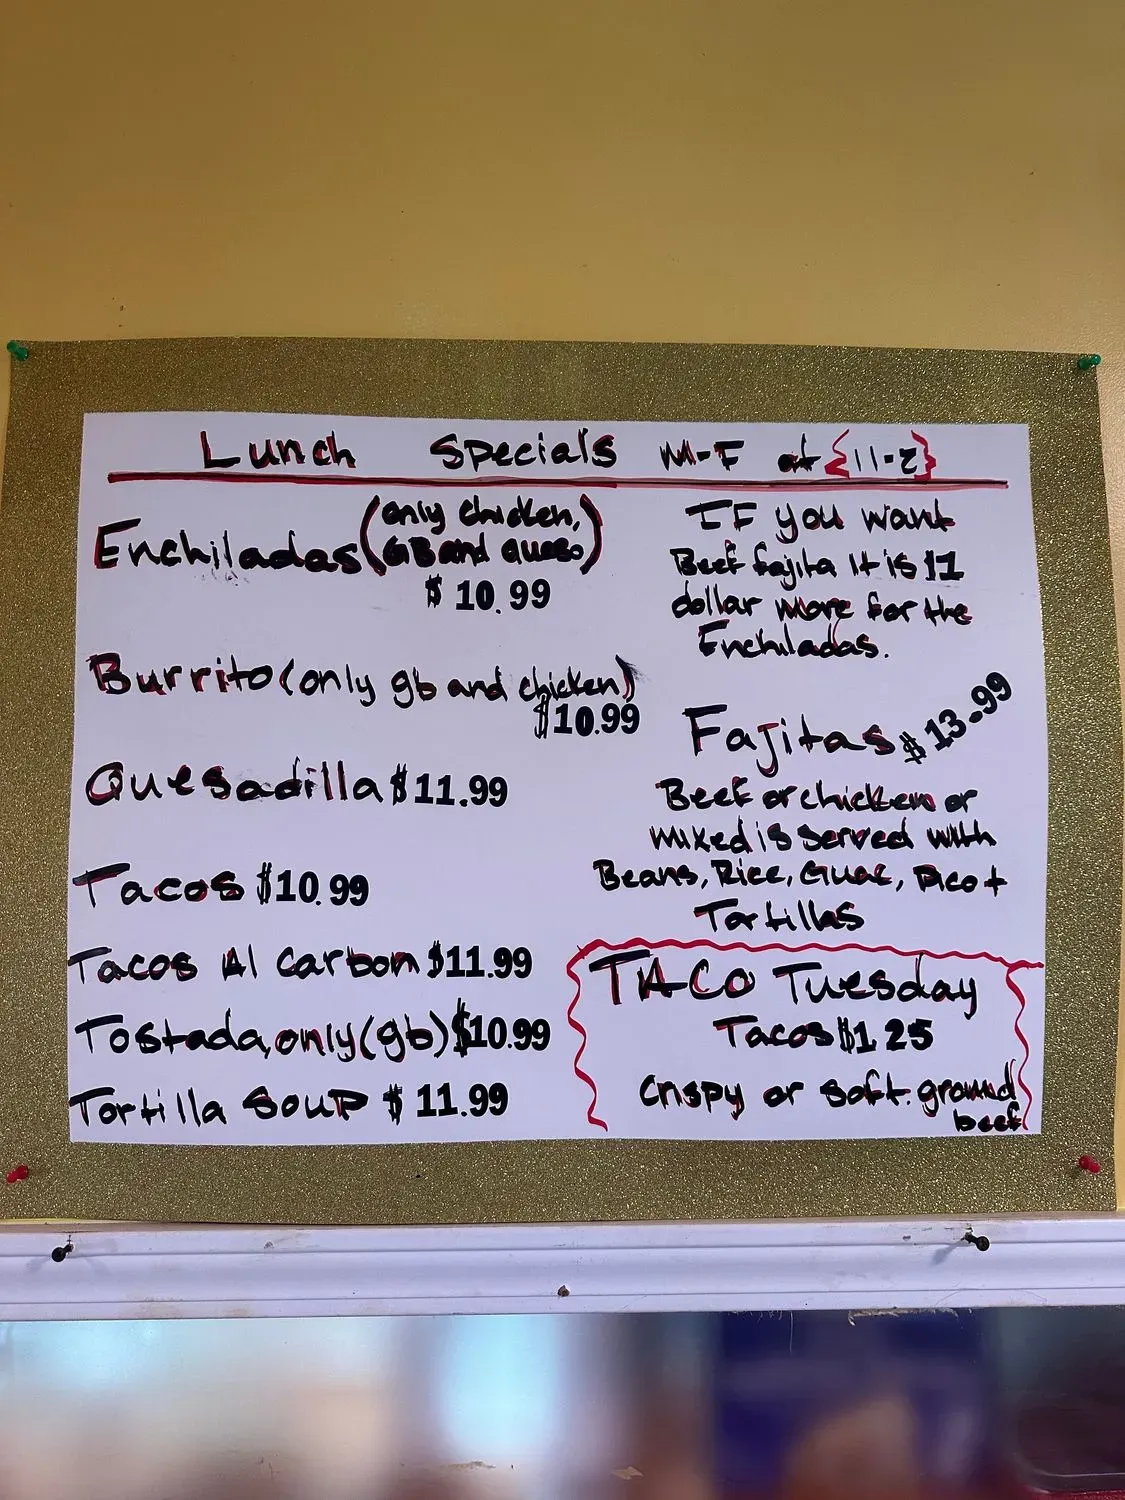 Lunch Specials M-F at {11-2}
Enchiladas (only chicken,
GB and queso)
$ 10.99
Burrito (only gb and chicken)
$10.99
Quesadilla $11.99
Tacos $10.99
Tacos Al Carbon $11.99
Tostada, only (gb) $10.99
Tortilla Soup $ 11.99
IF you want
Beef fajita it is $1
dollar more for the
Enchiladas.
Fajitas $13.99
Beef or chicken or
mixed is served with
Beans, Rice, Guac, Pico +
Tortillas
TACO Tuesday
Tacos $1.25
Crispy or soft. ground
beef